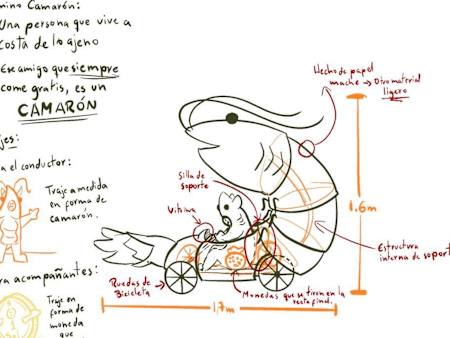 mino Camarón:
Una persona que vive a
costa de lo ajeno
Ese amigo que siempre
come gratis, es un
CAMARÓN
jes:
a el conductor:
Traje a medida
en forma de
camarón.
ra acompañantes:
Traje en
forma de
moneda
que
Hecho de papel
mache → Otro material
ligero
Silla de
soporte
Vitrina
1.6m
Estructura
interna de soport
Ruedas de
Bicicleta
Monedas que se tiran en la
recta final.
1,7m